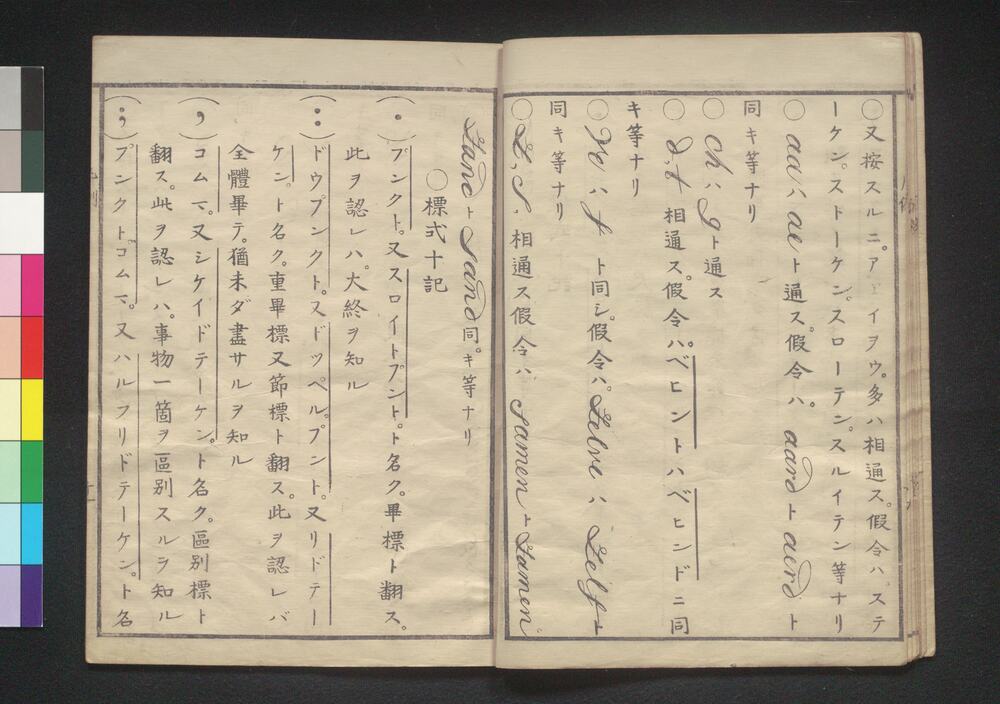 〇又按スルニ。アエイヲウ。多ハ相通ス。假令ハ、ステ
ーケン。ストーケン。スローテン。スルイテン等ナリ
〇aaハaeト通ス。假令ハ。aardトaerdト
同キ等ナリ
〇chハgト通ス
〇d,t相通ス。假令ハ。ベヒントハベヒンドニ同
キ等ナリ
〇veハfト同シ。假令ハ。ZelveハZelfト
同キ等ナリ
〇Z,S,相通ス假令ハSamenトZamen
ZandトSand同。キ等ナリ
〇標式十記
(.)プンクト。又スロイトプント。ト名ク。畢標ト翻ス。
此ヲ認レハ。大終ヲ知ル
(:)ドウプンクト。又ドッペル。プント。又リドテー
ケン。ト名ク。重畢標又節標ト翻ス。此ヲ認レバ
全體畢テ。猶未ダ盡サルヲ知ル
(,)コムマ。又シケイドテーケン。ト名ク。區別標ト
翻ス。此ヲ認レハ。事物一箇ヲ區別スルヲ知ル
(;)プンクトコムマ。又ハルフリドテーケン。ト名